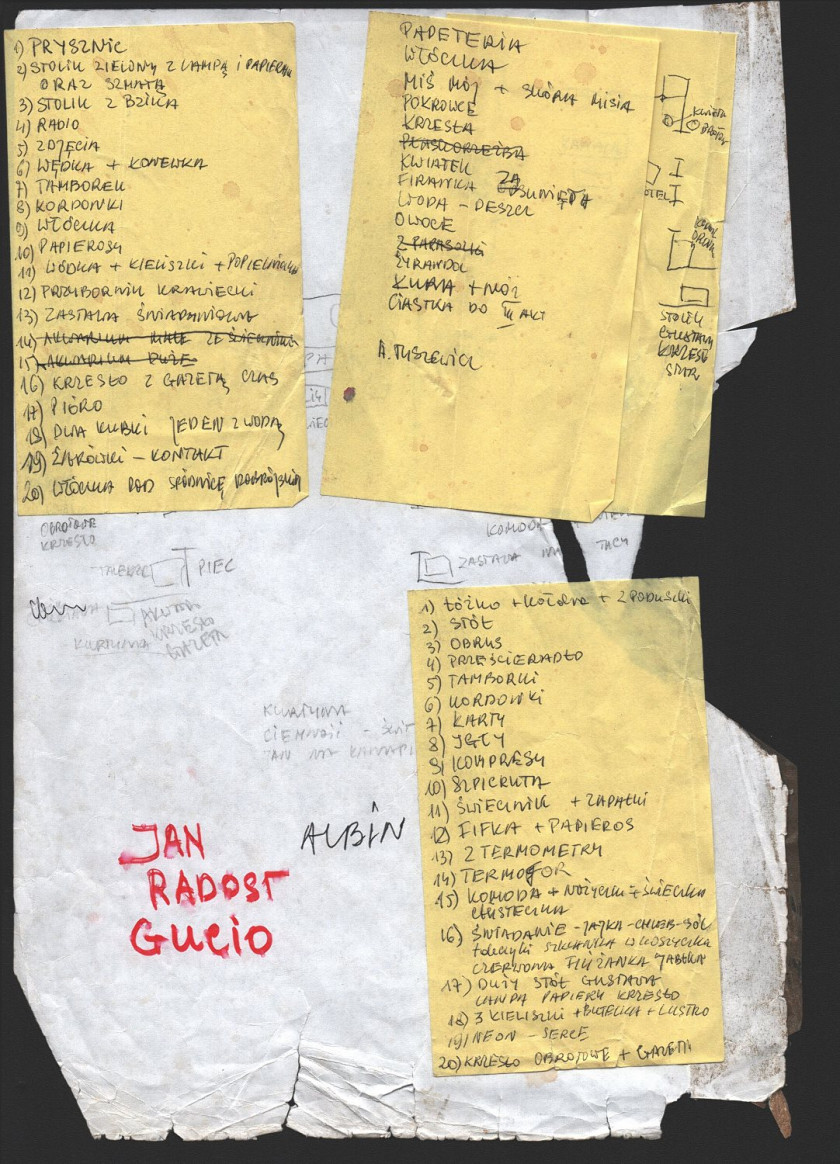 1) PRYSZNIC
2) STOLIK ZIELONY Z LAMPĄ I PAPIERAMI
ORAZ SZMATĄ
3) STOLIK Z
4) RADIO
5) ZDJĘCIA
6) WĘDKA + KONEWKA
7) TAMBOREK
8) KORDONKI
9) WŁÓCZKA
10) PAPIEROSY
11) WÓDKA + KIELISZKI + POPIELNICZKA
12) PRZYBORNIK KRAWIECKI
13) ZASTAWA ŚNIADANIOWA
14) AKWARIUM MAŁE ZE ŚLIMAKAMI
15) AKWARIUM DUŻE
16) KRZESŁO Z GAZETĄ CZAS
17) PIÓRO
18) DWA KUBKI JEDEN Z WODĄ
19) ŻARÓWKI - KONTAKT
20) WŁÓCZKA POD SPÓDNICĘ
PAPETERIA
WŁÓCZKA
MIŚ MÓJ + SKÓRA MISIA
POKROWCE
KRZESŁA
PŁASKORZEŹBA
KWIATEK
FIRANKA ZASUNIĘTA
WODA - DESZCZ
OWOCE
2 PARASOLKI
ŻYRANDOL
KURA + NÓŻ
CIASTKA DO III AKT
A. TYSZKIEWICZ
STOLIK
GUSTAWA
KRZESŁO
OBROTOWE
KRZESŁO
TALERZE
PIEC
KOMODA
ZASTAWA NA TACY
KRZESŁO
GAZETA
KURTYNA
KURTYNA
CIEMNOŚĆ - ŚWIT
JAN NA KANAPIE
JAN
RADOST
GUCIO
ALBIN
1) ŁÓŻKO + KOŁDRA + 2 PODUSZKI
2) STÓŁ
3) OBRUS
4) PRZEŚCIERADŁO
5) TAMBORKI
6) KORDONKI
7) KARTY
8) IGŁY
9) KOMPRESY
10) SZPICRUTA
11) ŚWIECZNIK + ZAPAŁKI
12) FIFKA + PAPIEROS
13) 2 TERMOMETRY
14) TERMOFOR
15) KOMODA + NOŻYCZKI + ŚWIECZKA
CHUSTECZKA
16) ŚNIADANIE - JAJKA - CHLEB - SÓL
talerzyki SZKLANKA W KOSZYCZKU
CZERWONA FILIŻANKA JABŁKA
17) DUŻY STÓŁ GUSTAWA
LAMPA PAPIERY KRZESŁO
18) 3 KIELISZKI + BUTELKA + LUSTRO
19) NEON - SERCE
20) KRZESŁO OBROTOWE + GAZETA